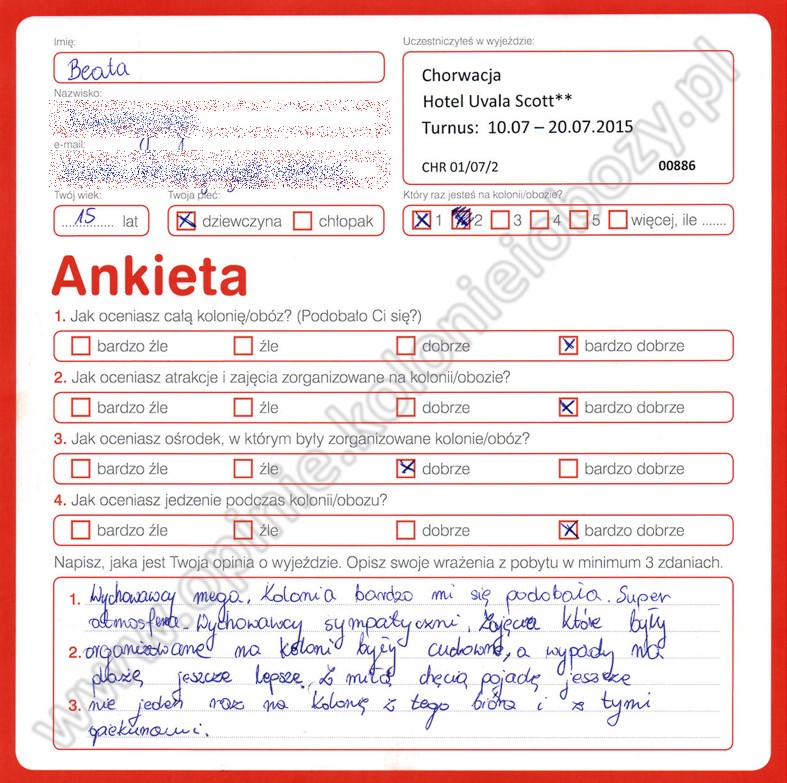 Imię:
Beata
Uczestniczyłeś w wyjeździe:
Chorwacja
Hotel Uvala Scott**
Turnus: 10.07 – 20.07.2015
CHR 01/07/2 00886
Nazwisko:
e-mail:
Twój wiek:
15 lat
Twoja płeć:
dziewczyna chłopak
Który raz jesteś na kolonii/obozie?
1 2 3 4 5 więcej, ile .......
Ankieta
1. Jak oceniasz całą kolonię/obóz? (Podobało Ci się?)
bardzo źle źle dobrze bardzo dobrze
2. Jak oceniasz atrakcje i zajęcia zorganizowane na kolonii/obozie?
bardzo źle źle dobrze bardzo dobrze
3. Jak oceniasz ośrodek, w którym były zorganizowane kolonie/obóz?
bardzo źle źle dobrze bardzo dobrze
4. Jak oceniasz jedzenie podczas kolonii/obozu?
bardzo źle źle dobrze bardzo dobrze
Napisz, jaka jest Twoja opinia o wyjeździe. Opisz swoje wrażenia z pobytu w minimum 3 zdaniach.
1. Wychowawcy mega. Kolonia bardzo mi się podobała. Super
atmosfera. Wychowawcy sympatyczni. Zajęcia które były
2. organizowane na koloni były cudowne, a wypady na
plażę jeszcze lepsze. Z miłą chęcią pojadę jeszcze
3. nie jeden raz na kolonię z tego bióra i z tymi
opiekunami.
www.opinie.kolonieiobozy.pl